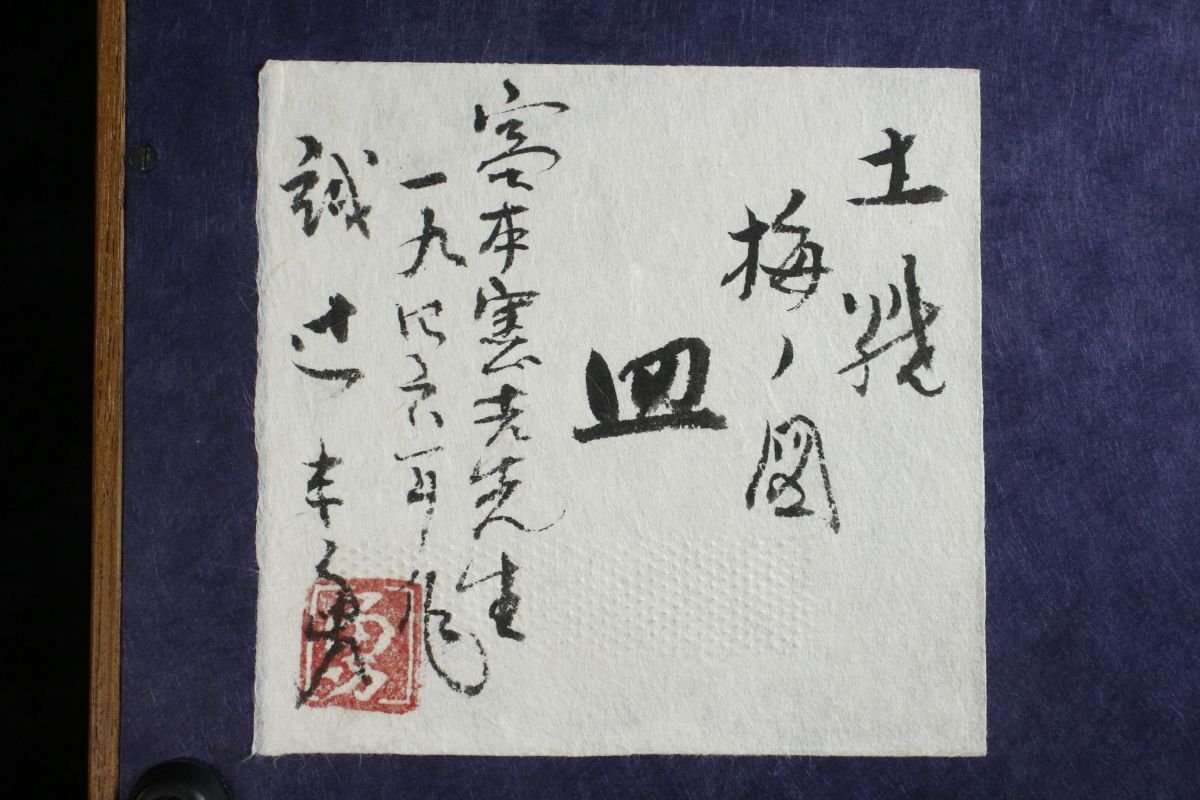 土焼
梅ノ図
皿
富本憲吉先生
一九四六年作
識 辻本勇
勇